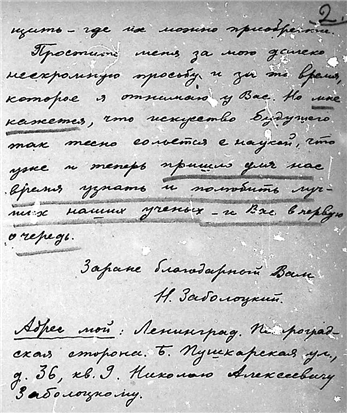 2.
щить - где их можно приобрести.
Простите меня за мою далеко
нескромную просьбу и за то время,
которое я отнимаю у Вас. Но мне
кажется, что искусство будущего
так тесно сольется с наукой, что
уже и теперь пришло для нас
время узнать и полюбить луч-
ших наших ученых - и Вас в первую
очередь.
Заранее благодарный Вам
Н. Заболоцкий.
Адрес мой: Ленинград. Петроград-
ская сторона. Б. Пушкарская ул.,
д. 36, кв. 9. Николаю Алексеевичу
Заболоцкому.